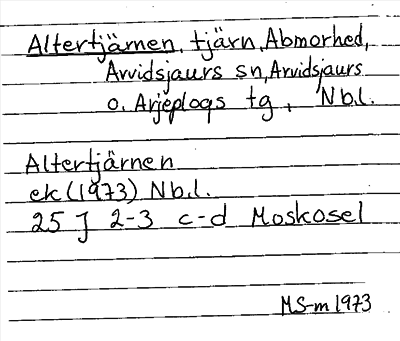 Altertjärnen, tjärn, Abmorhed,
Arvidsjaurs sn, Arvidsjaurs
o. Arjeplogs tg, Nb.l.
Altertjärnen
ek (1973) Nb.l.
25 J 2-3 c-d Moskosel
MS-m 1973